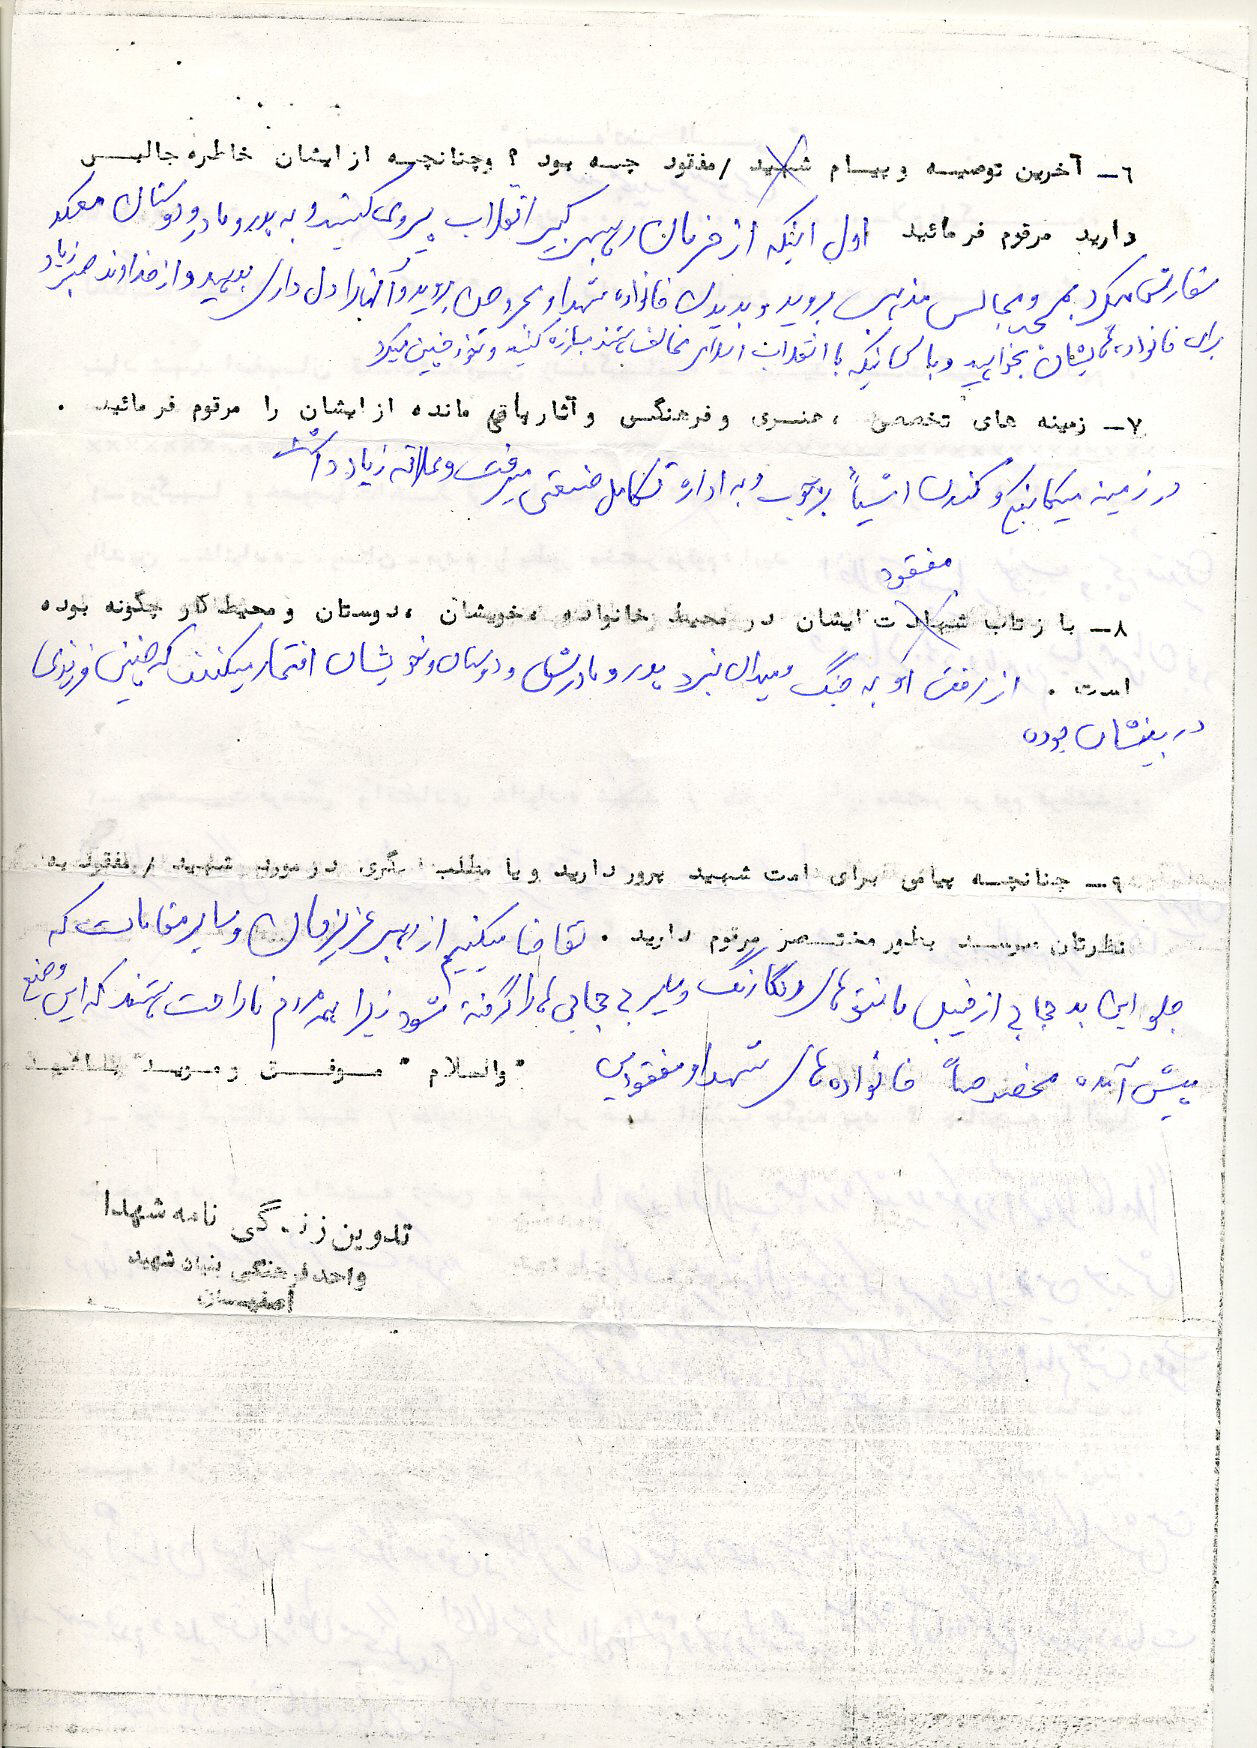 ۶ـ آخرین توصیه و پیام شهید / مفقود چه بود ؟ و چنانچه از ایشان خاطره جالبی
دارید مرقوم فرمائید اول اینکه از فرمان رهبر کبیر انقلاب پیروی کنید و به پدر و مادر و دوستان
سفارش میکرد به مسجد و مجالس مذهبی بروید و بدیدن خانواده شهدا و مجروحین بروید و آنها را دل داری بدهید و از خداوند صبر زیاد
برای خانواده هایشان بخواهید و با کسانیکه با انقلاب اسلامی مخالف هستند مبارزه کنید و خود چنین میکرد
۷ـ زمینه های تخصصی ، هنری و فرهنگی و آثار باقی مانده از ایشان را مرقوم فرمائید .
در زمینه میکانیکی و کندن اشیاً بر چوب و به اداره تکامل صنعتی میرفت و علاقه زیاد داشت
مفقود
۸ـ بازتاب شهادت ایشان در محیط خانواده ، خویشان ، دوستان و محیط کار چگونه بوده
است . از رفتن او به جنگ و میدان نبرد پدر و مادرش و دوستان و خویشان افتخار میکنند که چنین فرزندی
در بینشان بوده
۹ـ چنانچه پیامی برای امت شهید پرور دارید و یا مطلب دیگری در مورد شهید / مفقود به
نظرتان میرسد بطور مختصر مرقوم دارید . تقاضا میکنیم از رهبر عزیزمان و سایر مقامات که
جلو این بد حجابی از قبیل مانتو های رنگارنگ و سایر بی حجابی ها را گرفته شود زیرا همه مردم ناراحت هستند که این وضع
پیش آمده مخصوصاً خانواده های شهدا و مفقودین " والسلام " موفق و موید باشید
تدوین زندگی نامه شهدا
واحد فرهنگی بنیاد شهید
اصفهان